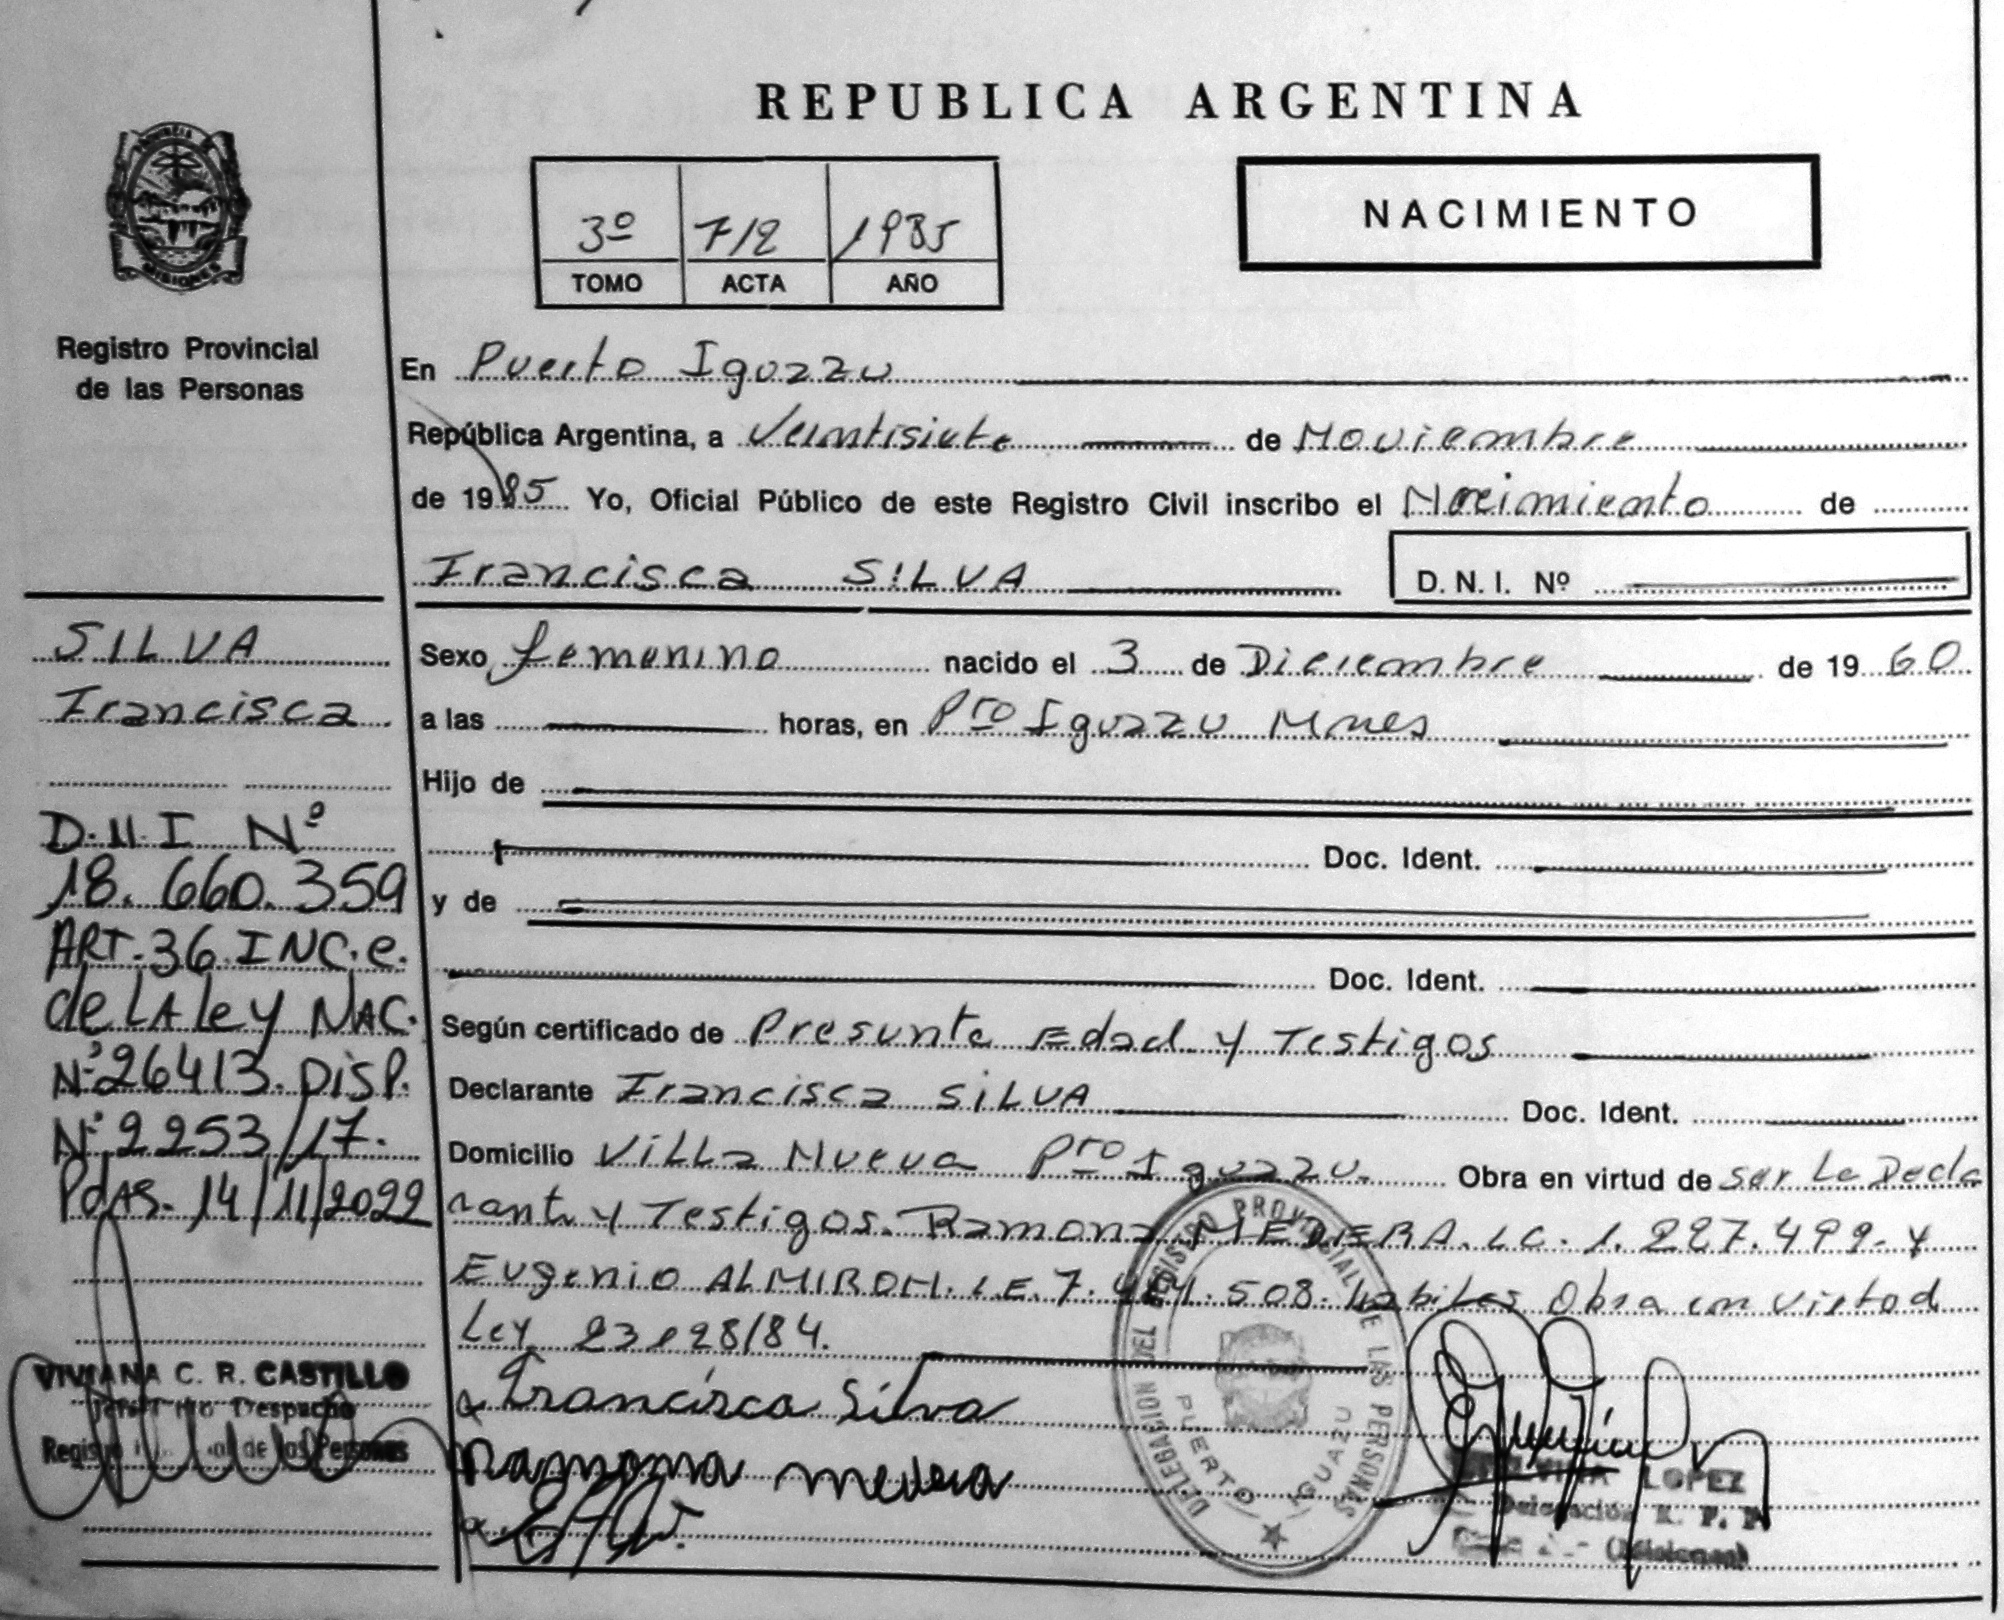 REPUBLICA ARGENTINA
PROVINCIA DE
MISIONES
3º 7/2 1985
TOMO ACTA AÑO
NACIMIENTO
Registro Provincial
de las Personas
En Puerto Iguazu
República Argentina, a Veintisiete de Noviembre
de 1985 Yo, Oficial Público de este Registro Civil inscribo el Nacimiento de
Francisca SILVA D. N. I. Nº
SILVA
Francisca
D.N.I Nº
18.660.359
ART.36.INC.e.
de LA ley NAC.
Nº26413.DISP.
Nº2253/17.
Pdas. 14/11/2022
VIVIANA C. R. CASTILLO
Despacho
de las Personas
Sexo femenino nacido el 3 de Diciembre de 1960
a las horas, en Pto Iguazu Mnes
Hijo de
Doc. Ident.
y de
Doc. Ident.
Según certificado de Presunta Edad y Testigos
Declarante Francisca SILVA Doc. Ident.
Domicilio Villa Nueva Pto Iguazu. Obra en virtud de ser La Decla
rante y Testigos. Ramona MEDIERA. LC. 1.227.499. y
Eugenio ALMIRON. L.E. 7. .508. habiles Obra en virtud
Ley 23128/84.
Francisca Silva
Ramona
DELEGACION DEL REGISTRO PROVINCIAL DE LAS PERSONAS
PUERTO IGUAZU
LOPEZ
Delegación R. P. P.
(Misiones)